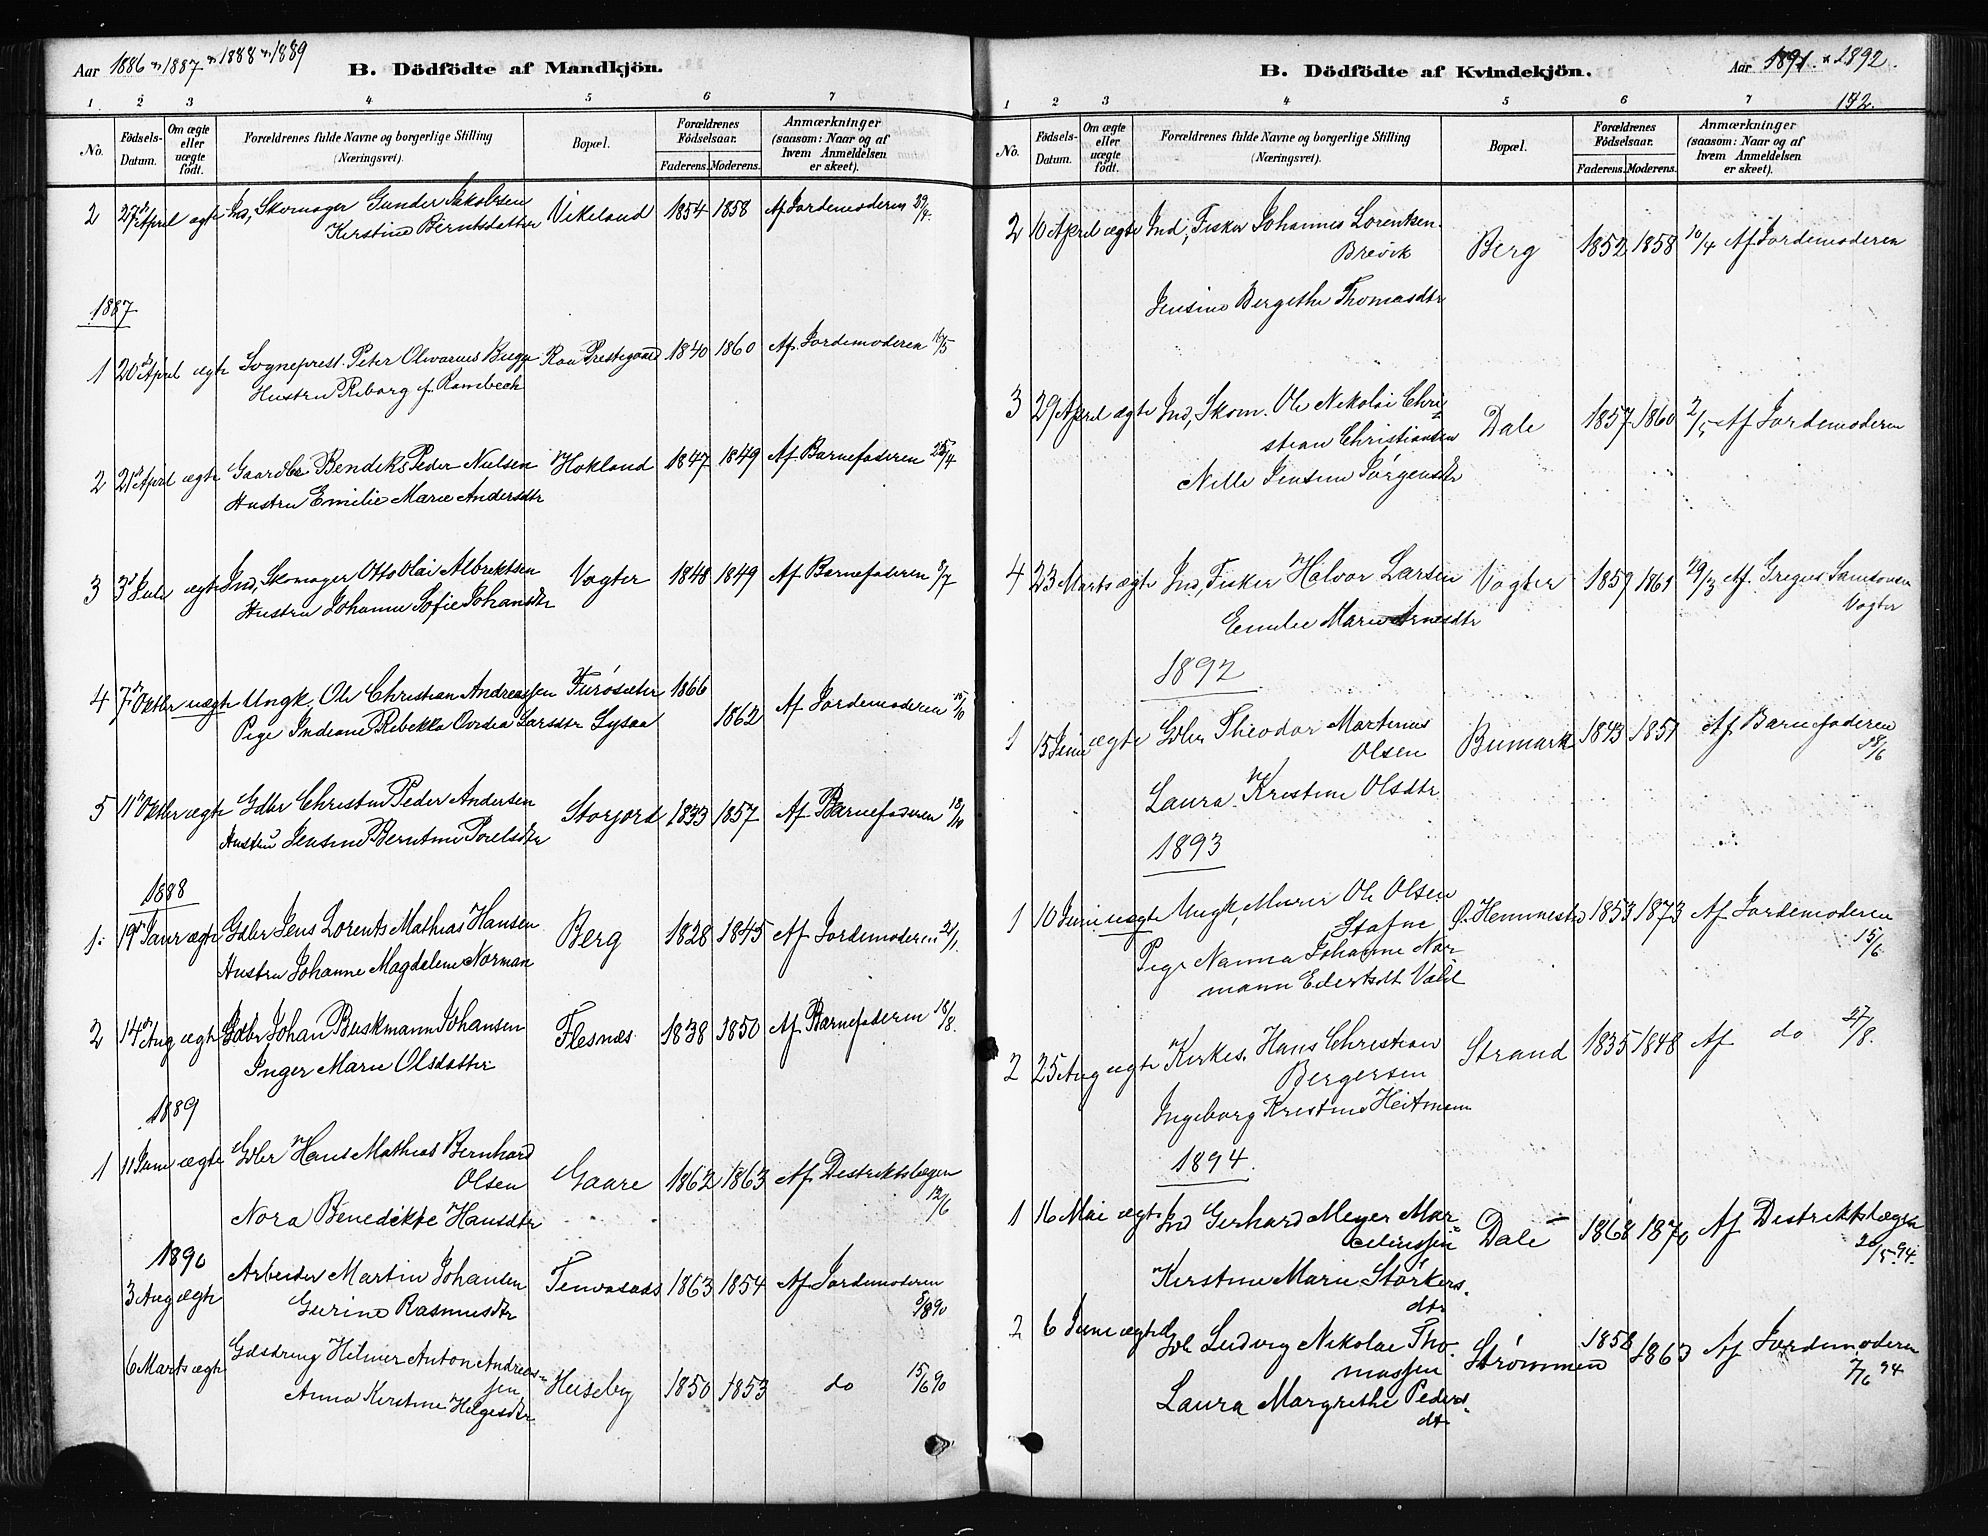 Aar 1886 & 1887 & 1888 & 1889
B. Dödfödte af Mandkjön.
1 2 3 4 5 6 7
No.
Födsels-Datum.
Om ægte eller uægte födt.
Forældrenes fulde Navne og borgerlige Stilling (Næringsvei).
Bopæl.
Forældrenes Födselsaar.
Faderens. Moderens.
Anmærkninger (saasom: Naar og af hvem Anmeldelsen er skeet).
2 27de April ægte Ind, Skomager Gunder Jakobsen Vikeland 1854 1858 Af Jordemoderen
Kirstine Berntsdatter
1887
1 20de April ægte Sogneprest Peter Olivarius Bugge Prestegaard 1840 1860 Af Jordemoderen
Hustru Riborg f. Rambech
2 21de April ægte Gaardbr Bendiks Peder Nielsen Hokland 1847 1849 Af Barnefaderen 25/4
Hustru Emilie Marie Andersdtr
3 3de Juli ægte Ind, Skomager Otto Olai Albrektsen Vogter 1848 1849 Af Barnefaderen
Hustru Johanna Sofie Johansdtr
4 7de Oktbr uægte Ungk. Ole Christian Andreassen 1866 Af Jordemoderen
Pige Indiane Rebekka Ovidia Larsdtr Lysaa 1862
5 11te Oktbr ægte Gdbr Peder Andersen Storjord 1833 1857 Af Barnefaderen 18/10
Hustru Jensine
1888
1. 19de Janr ægte Gdbr Jens Lorents Mathias Hansen Berg 1828 1845 Af Jordemoderen 21/1
Hustru Johanne Magdalene Norman
2 14de Aug ægte Gdbr Johan Johansen Flesnæs 1838 1850 Af Barnefaderen 18/8.
Inger Marie Olsdatter
1889
1 11 Juni ægte Gdbr Hans Mathias Bernhard
Olsen Gaare 1862 1863 Af Distriktslægen
12/6
Nora Benedikte Hansdtr
1890
3 Aug ægte Arbeider Martin Johansen 1863 1854 Af Jordemoderen
Gurine Rasmusdtr 8/8 90
6 Marts ægte Hilmer Anton Andreas-
sen Huseby 1850 1853 do 15/6 90
Anna Kirstine Helgesdtr
B. Dödfödte af Kvindekjön.
Aar 1891. & 1892.
142.
1 2 3 4 5 6 7
No.
Födsels-Datum.
Om ægte eller uægte födt.
Forældrenes fulde Navne og borgerlige Stilling (Næringsvei).
Bopæl.
Forældrenes Födselsaar.
Faderens. Moderens.
Anmærkninger (saasom: Naar og af hvem Anmeldelsen er skeet).
2 10 April ægte Ind, Fisker Johannes Lorentsen
Brevik Berg 1852 1858 10/4 Af Jordemoderen
Jensine Bergithe Thomasdtr
3 29 April ægte Ind, Skom. Ole Nikolai Chri-
stian Christiansen Dale 1857 1860 2/5 Af Jordemoderen
Nille Jensine Jörgensdtr
4 23 Marts ægte Ind, Fisker Halvor Larsen Vogter 1857 1861 29/3 Af Gregus Samsonsen
Vogter
Emilie Marie Arnesdtr
1892
1 15 Juni ægte Gdbr Theodor Martinus
Olsen Bumark 1843 1851 Af Barnefaderen
18/6
Laura Kristine Olsdtr
1893
1 10 Juni uægte Ungk, Murer Ole Olsen
Stafne Ø. Hemmestad 1853 1873 Af Jordemoderen
15/6
Pige Nanna Johanne Nor-
mann
2 25 Aug ægte Kirkes. Hans Christian
Bergersen Strand 1835 1848 Af do 27/8.
Ingeborg Kristine Heitmann
1894.
1 16 Mai ægte Ind Gerhard Meyer Mar-
celiussen Dale 1868 1870 Af Distriktslægen
20/5 94.
Kirstine Marie Störkers-
dtr
2 6 Juni ægte Ludvig Nikolai Tho-
massen Strømmen 1858 1863 Af Jordemoderen
7/6 94
Laura Margrethe Peders-
dtr